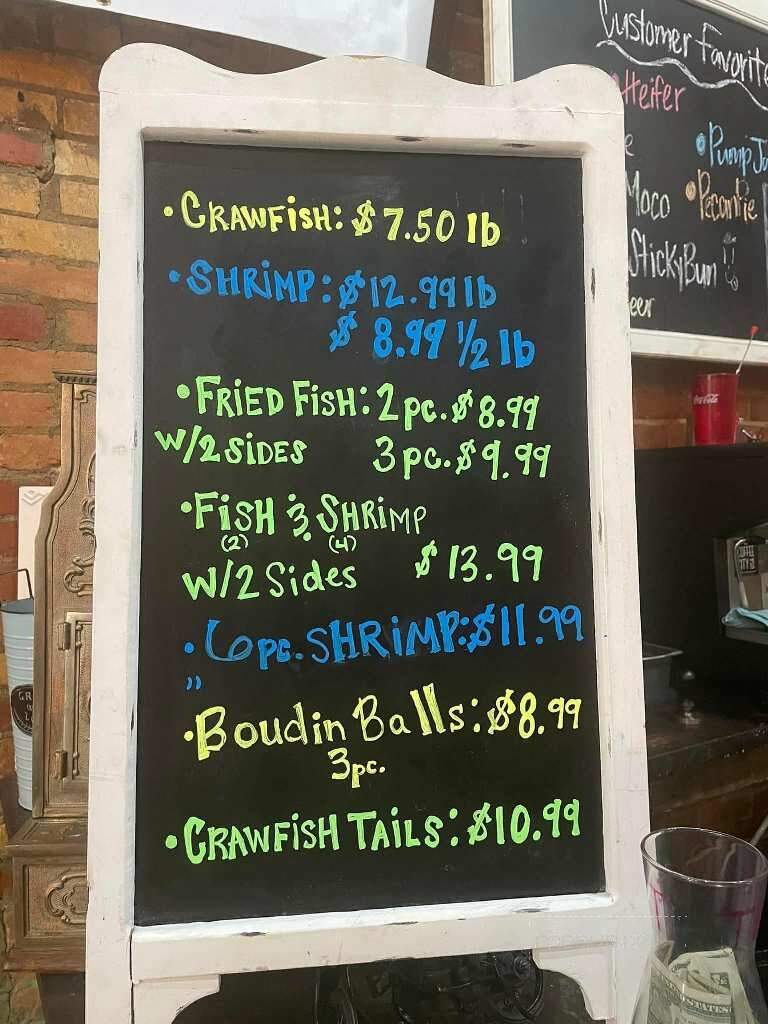 •CRAWFiSH: $7.50 lb
•SHRiMP: $12.99 lb
$8.99 ½ lb
•FRiED FiSH: 2pc. $8.99
W/2 SiDES 3pc. $9.99
•FiSH & SHRiMP
(2) (4)
W/2 Sides $13.99
•6pc. SHRiMP: $11.99
"
•Boudin Balls: $8.99
3pc.
•CRAWFiSH TAiLS: $10.99
Customer Favorite
Heifer
•Pump
Moco •PecanPie
StickyBun
Coca-Cola